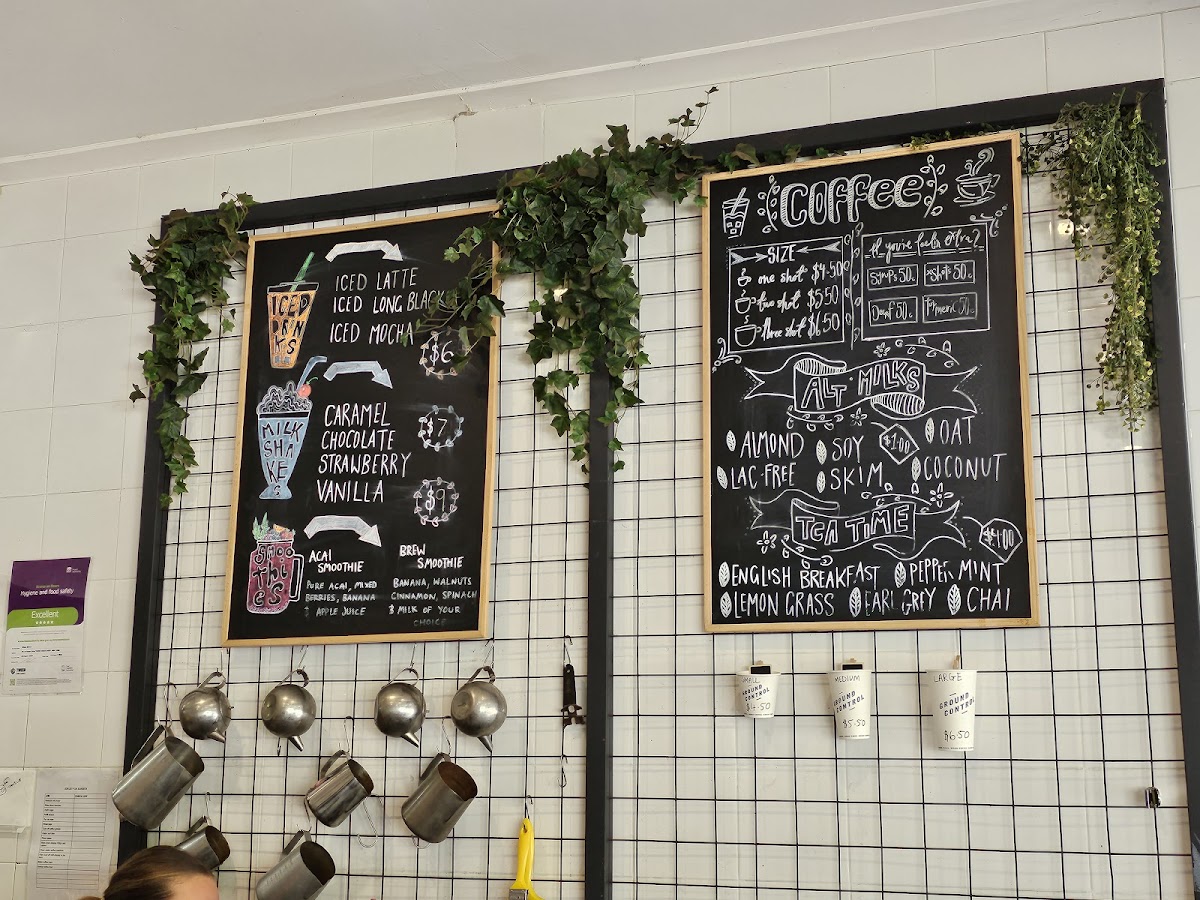 ICED DRINKS
ICED LATTE
ICED LONG BLACK
ICED MOCHA
$6
MILK SHAKES
CARAMEL
CHOCOLATE
STRAWBERRY
VANILLA
$7
$9
Smoothies
ACAI SMOOTHIE
PURE ACAI, MIXED
BERRIES, BANANA
& APPLE JUICE
BREW SMOOTHIE
BANANA, WALNUTS
CINNAMON, SPINACH
& MILK OF YOUR
CHOICE
COFFEE
SIZE
one shot $4.50
two shot $5.50
three shot $6.50
If you're feelin extra?
Syrup 50c
xshot 50c
Decaf 50c
Turmeric 50c
ALT·MILKS
$1.00
ALMOND SOY OAT
LAC-FREE SKIM COCONUT
TEA TIME
$4.00
ENGLISH BREAKFAST PEPPERMINT
LEMON GRASS EARL GREY CHAI
SMALL
GROUND CONTROL
$4.50
MEDIUM
GROUND CONTROL
$5.50
LARGE
GROUND CONTROL
$6.50
Hygiene and food safety
Excellent